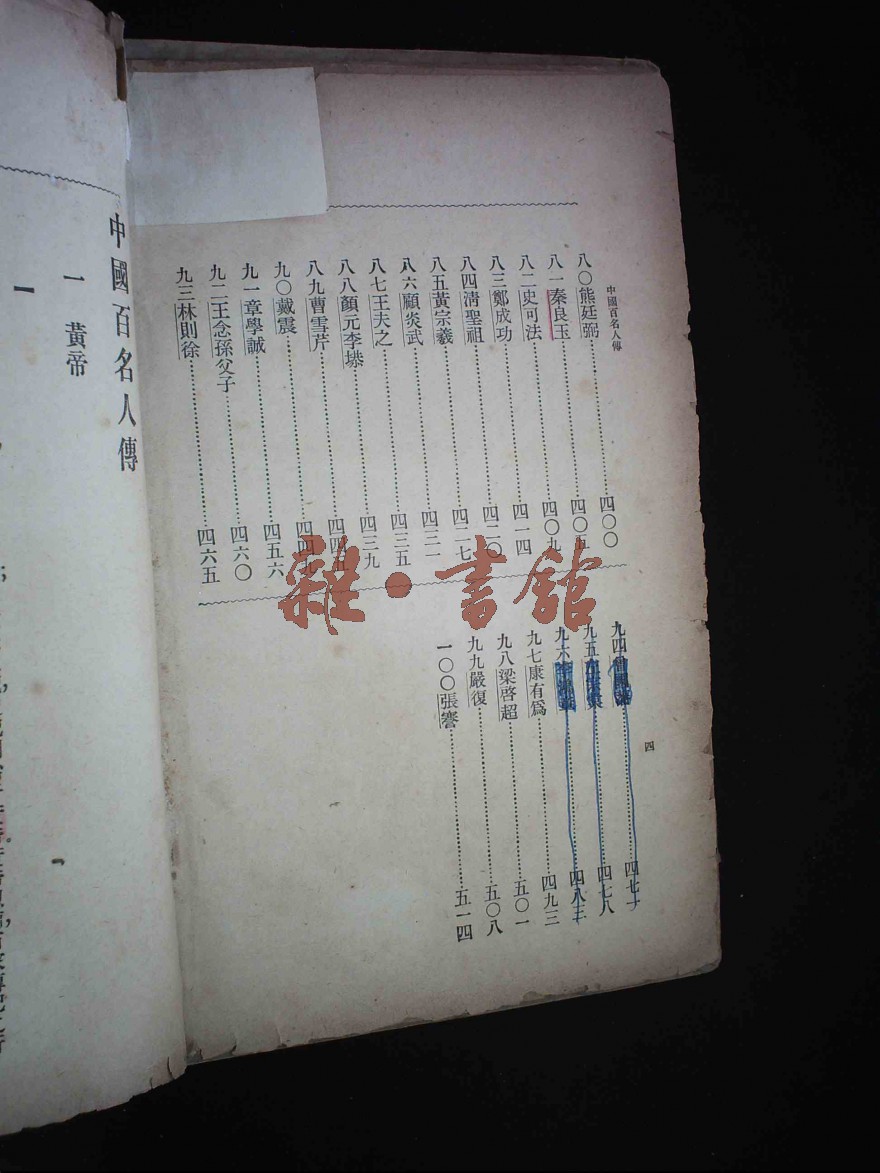 中國百名人傳
八〇熊廷弼………四〇〇
八一秦良玉………四〇五
八二史可法………四〇九
八三鄭成功………四一四
八四清聖祖………四二〇
八五黃宗羲………四二七
八六顧炎武………四三一
八七王夫之………四三五
八八顏元李塨………四三九
八九曹雪芹………四四五
九〇戴震………四四九
九一章學誠………四五六
九二王念孫父子………四六〇
九三林則徐………四六五
九四………四七一
九五………四七八
九六………四八三
九七康有爲………四九三
九八梁啓超………五〇一
九九嚴復………五〇八
一〇〇張謇………五一四
四
中國百名人傳
一 黃帝
一
雜·書館